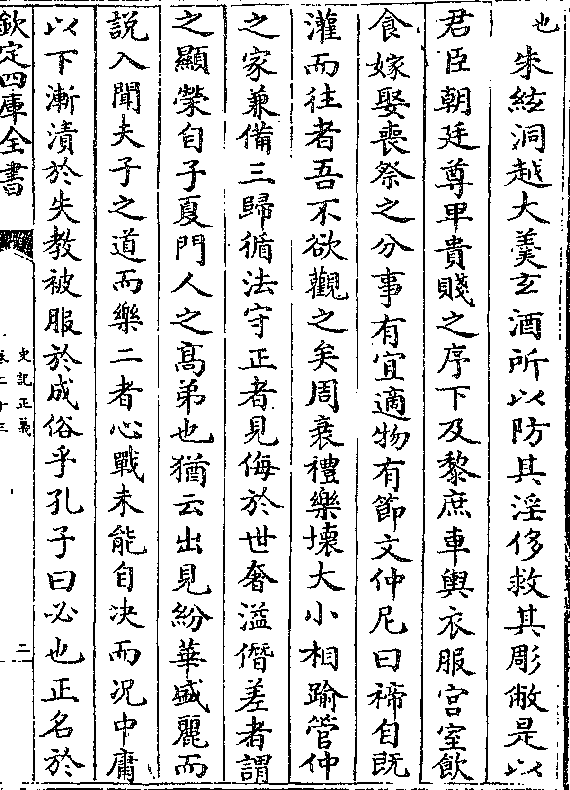 也 朱絃洞越大羹玄酒所以防其淫侈救其彫敝是以
君臣朝廷尊卑貴賤之序下及黎庶車輿衣服宮室飲
食嫁娶喪祭之分事有宜適物有節文仲尼曰禘自既
灌而往者吾不欲觀之矣周衰禮樂壞大小相踰管仲
之家兼備三歸循法守正者見侮於世奢溢僭差者謂
之顯榮自子夏門人之高弟也猶云出見紛華盛麗而
說入聞夫子之道而樂二者心戰未能自決而況中庸
以下漸漬於失教被服於成俗乎孔子曰必也正名於
欽定四庫全書
史記正義
卷二十三
二